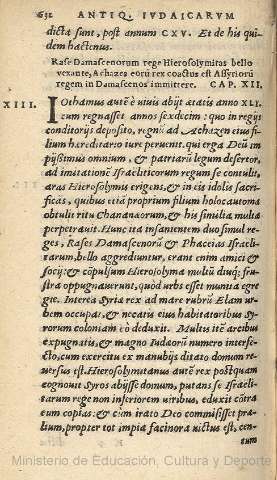 632 ANTIQ. IVDAICARVM
dicta sunt, post annum CXV. Et de his qui
dem hactenus.
Rase Damascenorum rege Hierosolymitas bello
vexante, Achazes eorū rex coactus est Assyriorū
regem in Damascenos immittere. CAP. XII.
XIII. IOthamus autē è viuis abijt ætatis anno XLI.
cum regnasset annos sexdecim : quo in regijs
conditorijs deposito, regnū ad Achazen eius fi-
lium hæreditario iure peruenit. qui erga Deū im
pijssimus omnium, & patriarū legum desertor,
ad imitationē Israeliticorum regum se contulit,
aras Hierosolymis erigens, & in eis idolis sacri-
ficās, quibus etiā proprium filium holocautoma
obtulit ritu Chananæorum, & his similia multa
perpetrauit. Hunc ita insanientem duo simul re
ges, Rases Damascenorū & Phaceias Israeli-
tarum, bello aggrediuntur, erant enim amici &
socij: & cōpulsum Hierosolyma multū diuq; fru-
stra oppugnauerunt, quòd vrbs esset munita egre
giè. Interea Syriæ rex ad mare rubrū Elam vr-
bem occupat, & necatis eius habitatoribus Sy-
rorum coloniam eò deduxit. Multis itē arcibus
expugnatis, & magno Iudæorū numero interse-
cto, cum exercitu ex manubijs ditato domum re-
uersus est. Hierosolymitanus autē rex postquam
cognouit Syros abijsse domum, putans se Israeli-
tarum rege non inferiorem viribus, eduxit cōtra
eum copias: & cum irato Deo commisisset præ-
lium, propter tot impia facinora victus est, cen-
tum
Ministerio de Educación, Cultura y Deporte